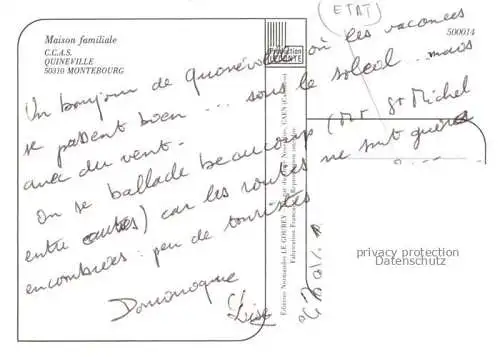 (ETAT)
Maison familiale
C.C.A.S.
QUINEVILLE
50310 MONTEBOURG
500014
Un bonjour de Quinéville où les vacances
se passent bien... sous le soleil... mais
avec du vent.
On se ballade beaucoup (Mt St Michel
entre autres) car les routes ne sont guère
encombrées : peu de touristes
Dominique
Lise
Editions Normandes LE GOUBEY
privacy protection
Datenschutz